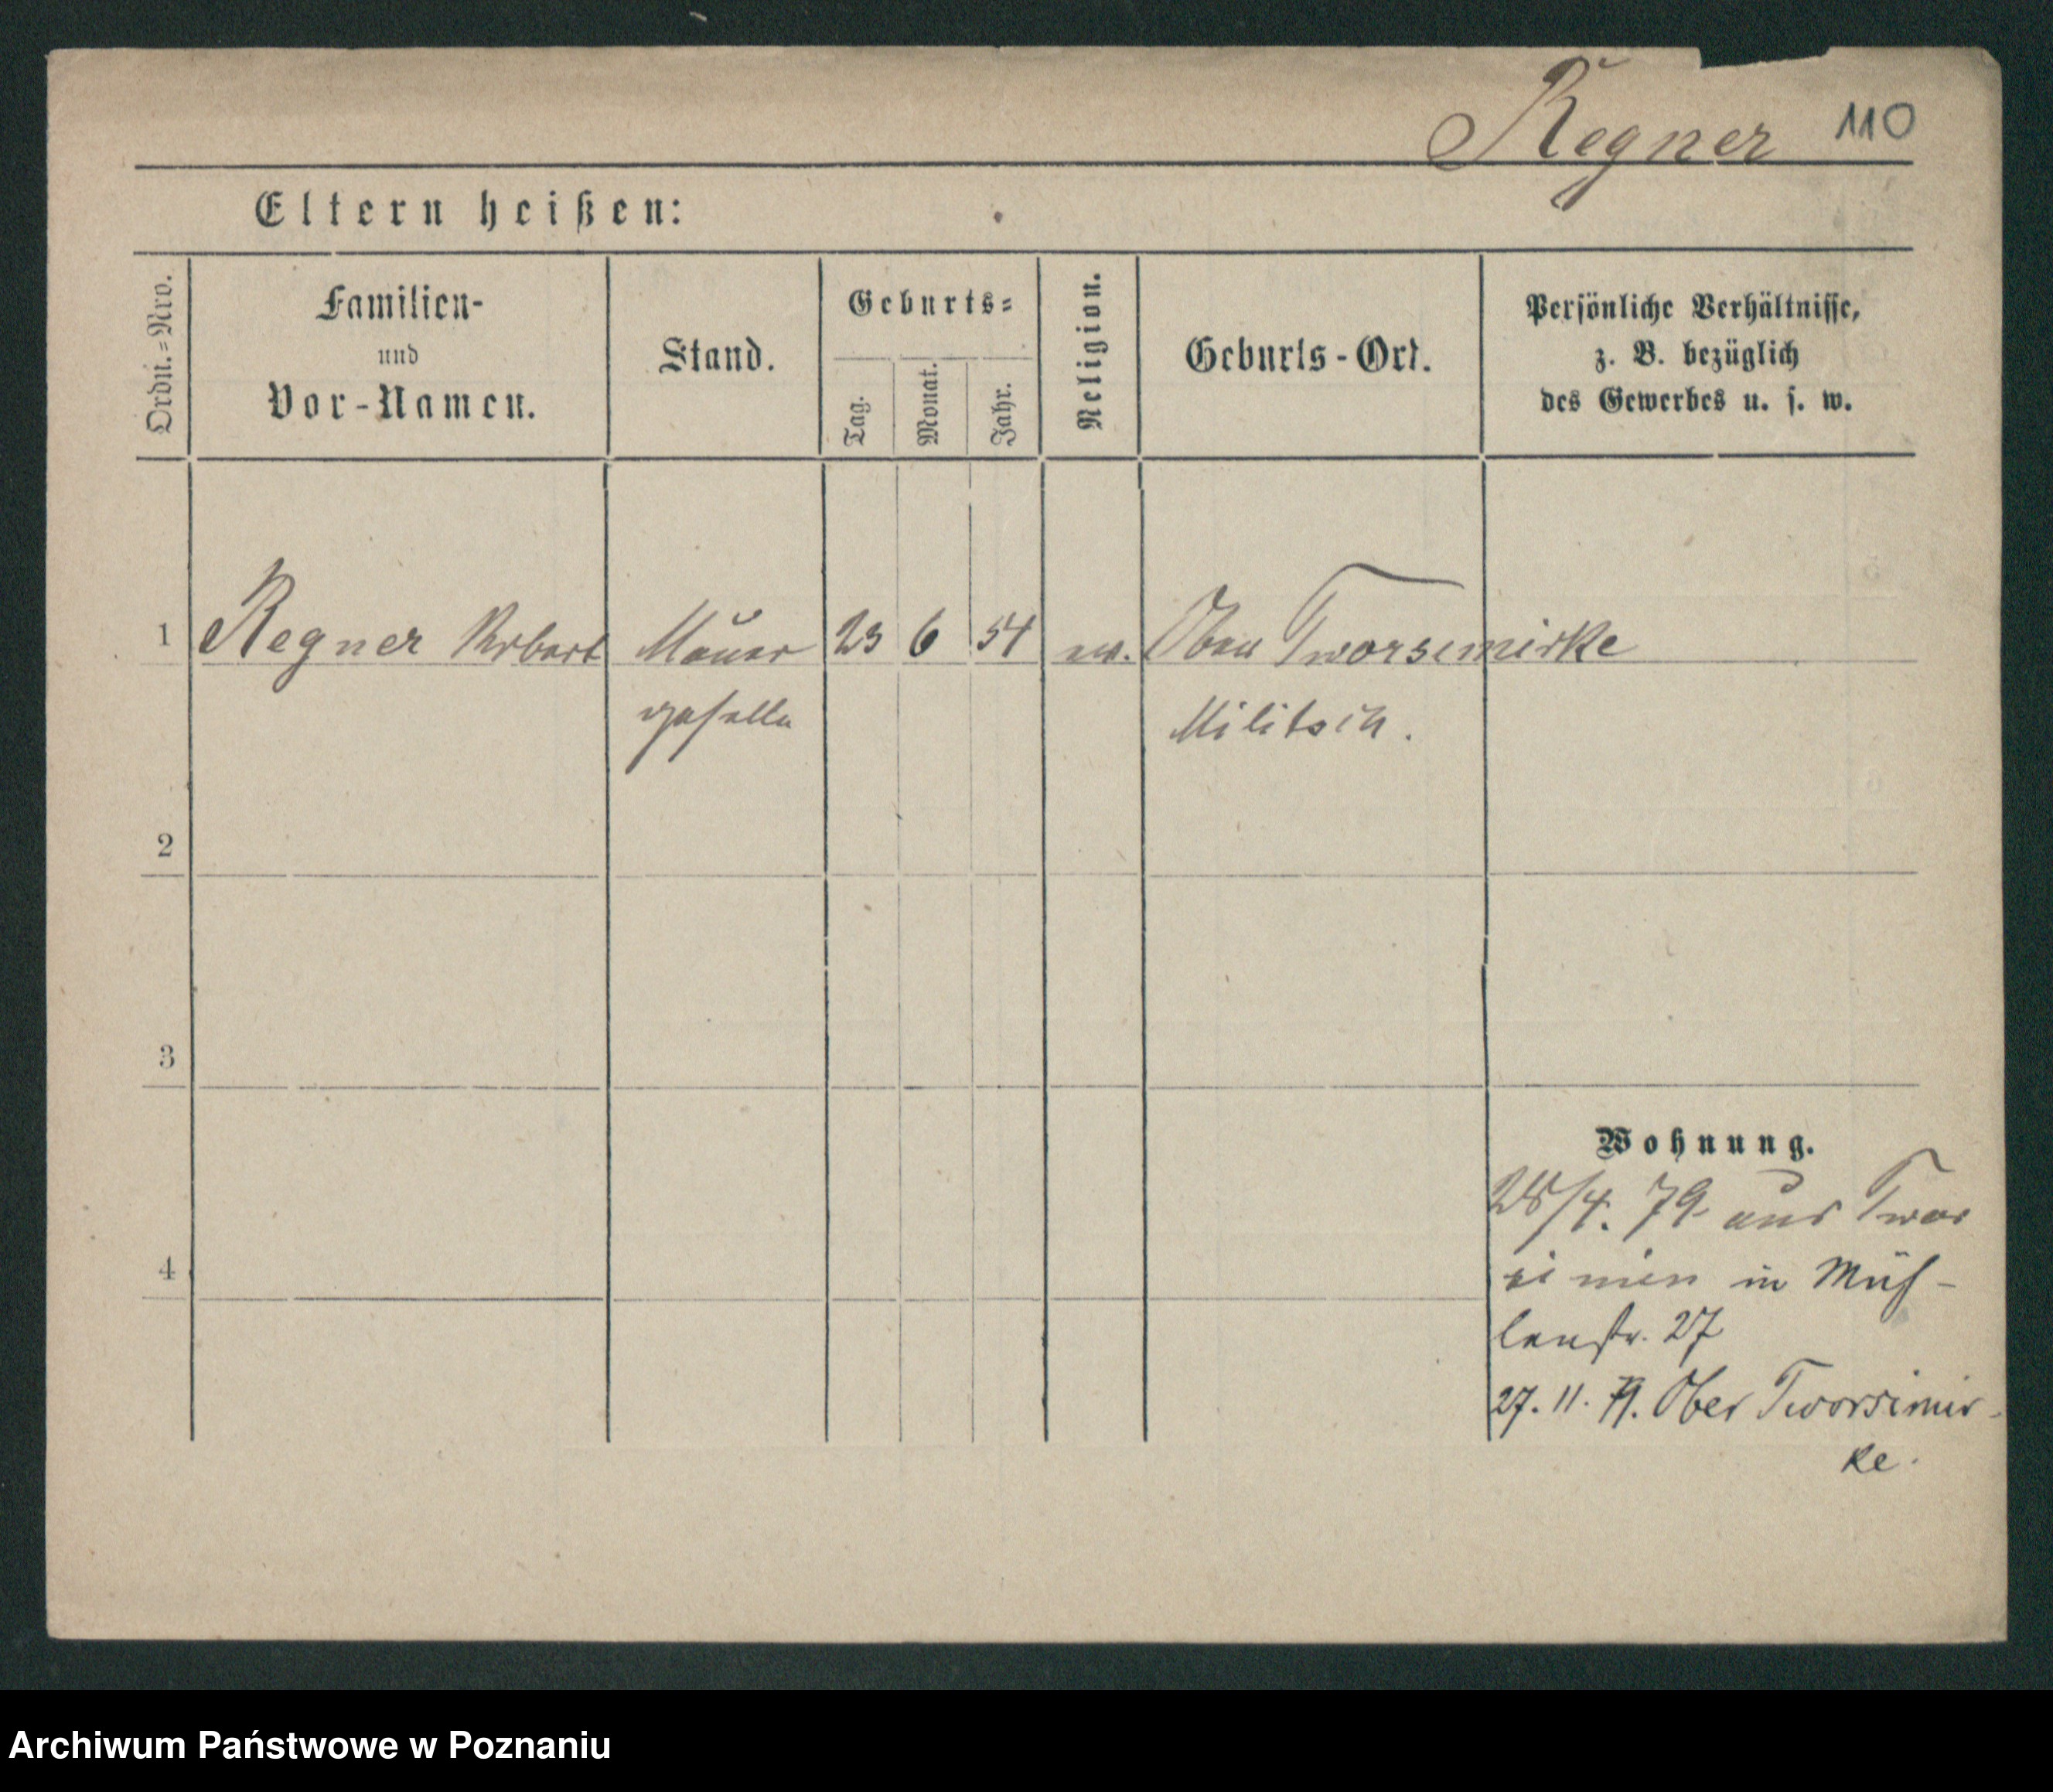 Regner 110
Eltern heißen:
Ordn.=Nro.
Familien-
und
Vor-Namen.
Stand.
Geburts=
Tag.
Monat.
Jahr.
Religion.
Geburts-Ort.
Persönliche Verhältnisse,
z. B. bezüglich
des Gewerbes u. s. w.
1 Regner Robert Mauer 23 6 54 ev. Ober Tworsimirke
geselle Militsch.
2
3
Wohnung.
28/4. 79 aus Twor
4
in Müh-
lenstr. 27
27. 11. 79. Ober Tworsimir-
ke.
Archiwum Państwowe w Poznaniu